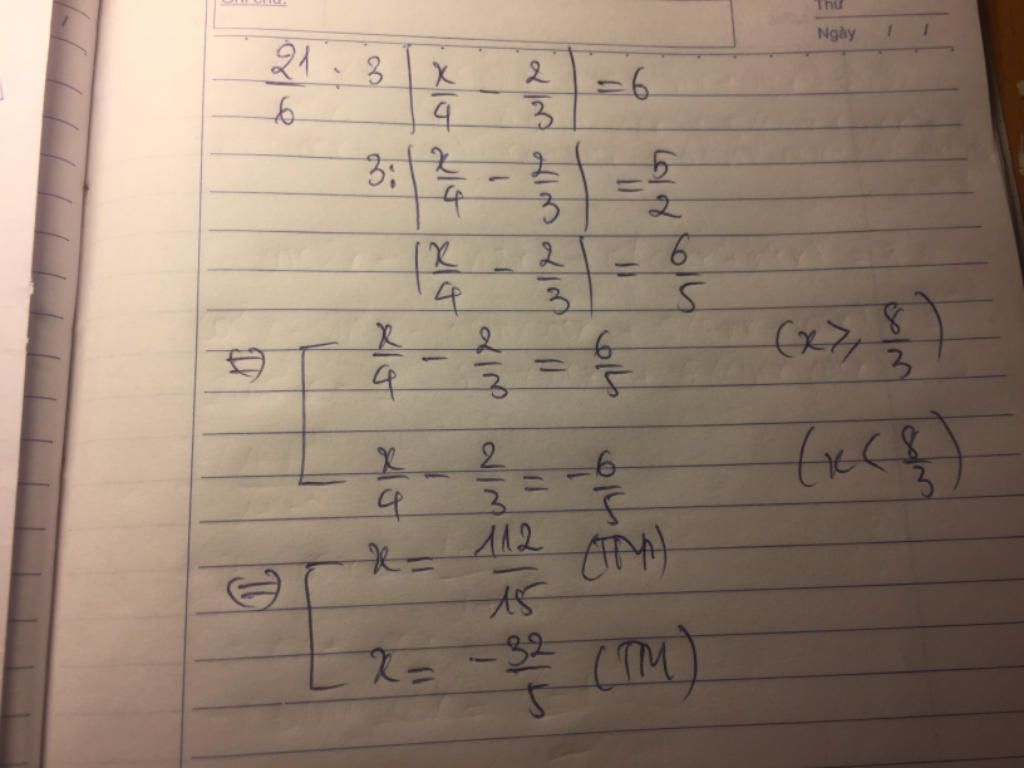 Thứ
Ngày / /
21/6 : 3 |x/4 - 2/3| = 6
3: |x/4 - 2/3| = 5/2
|x/4 - 2/3| = 6/5
⇔ [ x/4 - 2/3 = 6/5 (x ≥ 8/3)
x/4 - 2/3 = -6/5 (x < 8/3)
⇔ [ x = 112/15 (TM)
x = -32/5 (TM)